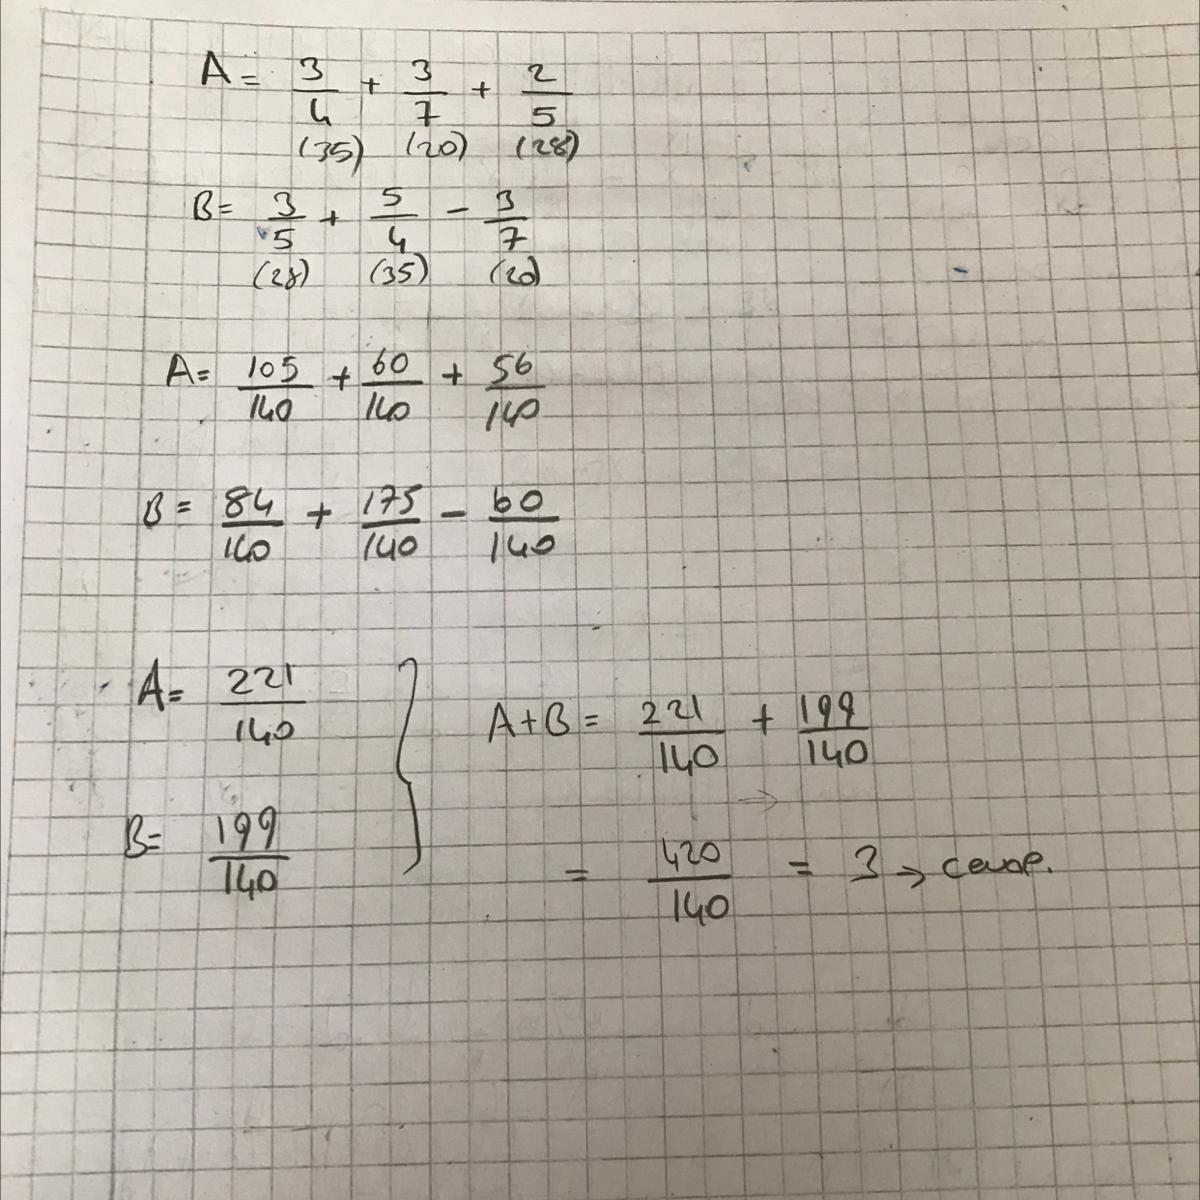 A = 3/4 + 3/7 + 2/5
(35) (20) (28)
B = 3/5 + 5/4 - 3/7
(28) (35) (20)
A = 105/140 + 60/140 + 56/140
B = 84/140 + 175/140 - 60/140
A = 221/140
B = 199/140
A+B = 221/140 + 199/140
= 420/140 = 3 → cevap.